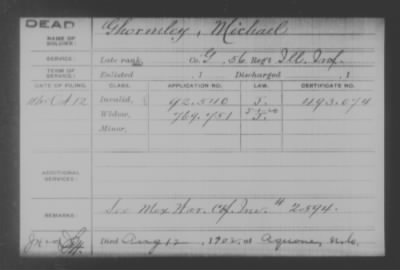 DEAD
NAME OF SOLDIER:
Ghormley, Michael
SERVICE:
Late rank, Co. G, 56 Reg't Ill. Inf.
TERM OF SERVICE:
Enlisted , 1 Discharged , 1
DATE OF FILING.
CLASS.
APPLICATION NO.
LAW.
CERTIFICATE NO.
Invalid, 92.540 J. 1193.074
Widow, 769.751 J.
Minor,
ADDITIONAL SERVICES:
REMARKS:
See Mex War. Ctf. Inv. # 2.894.
Died Aug 12, 1902, at Aquone, N.C.